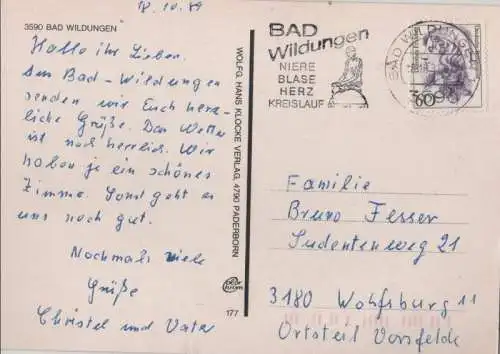 18.10.89
3590 BAD WILDUNGEN
Hallo ihr Lieben.
Aus Bad-Wildungen
senden wir Euch herz-
liche Grüße. Das Wetter
ist noch herrlich. Wir
haben je ein schönes
Zimmer. Sonst geht es
uns noch gut.
Nochmals viele
Grüße
Christel und Vater
WOLFG. HANS KLOCKE VERLAG, 4790 PADERBORN
177
BAD
Wildungen
NIERE
BLASE
HERZ
KREISLAUF
BAD WILDUNGEN
3590
60
Familie
Bruno Fesser
Sudentenweg 21
3180 Wolfsburg 11
Ortsteil Vorsfelde